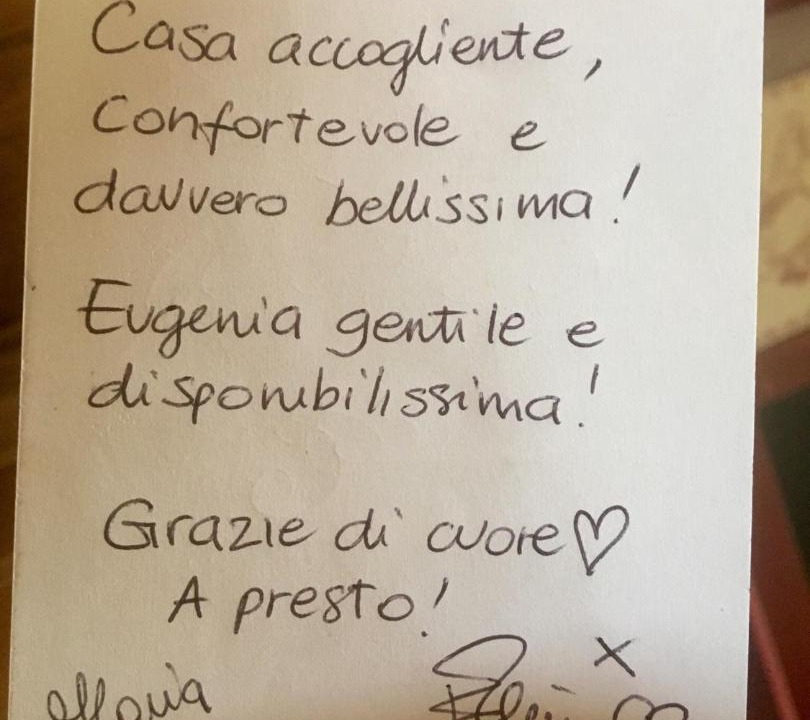 Casa accogliente,
Confortevole e
davvero bellissima!
Eugenia gentile e
disponibilissima!
Grazie di cuore♡
A presto!
x